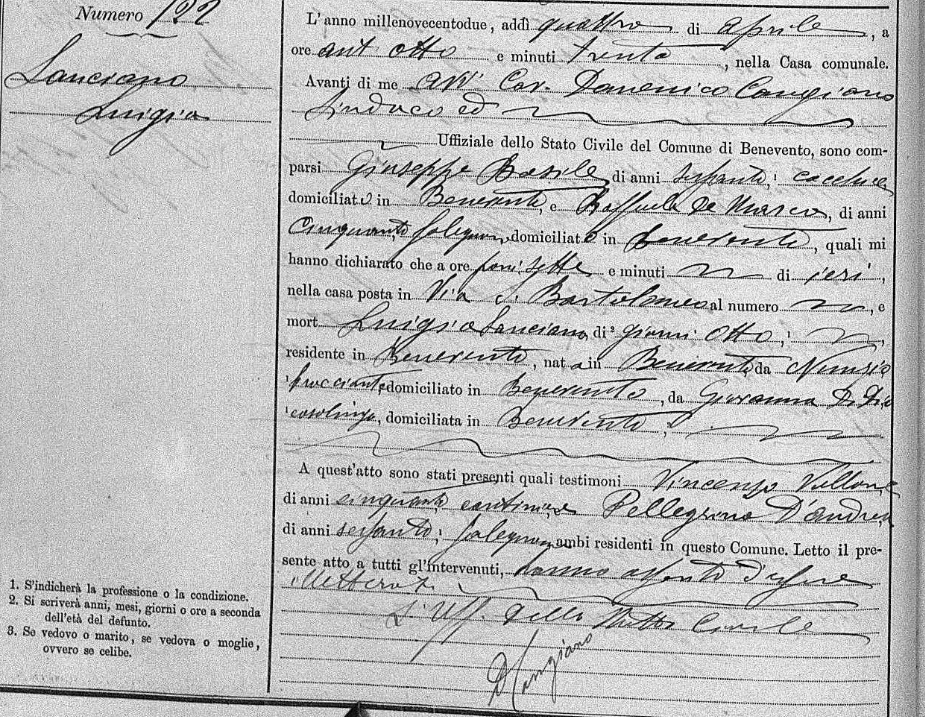 Numero 122
Lanciano
Luigia
L'anno millenovecentodue, addì quattro di aprile, a
ore ant otto e minuti trenta, nella Casa comunale.
Avanti di me avv Cav. Domenico Cangiano
Sindaco ed
Uffiziale dello Stato Civile del Comune di Benevento, sono com-
parsi Giuseppe Basile, di anni sessanta,
domiciliato in Benevento, e Raffaele De Marco, di anni
Cinquanta, falegname, domiciliato in Benevento, quali mi
hanno dichiarato che a ore pom sette e minuti di ieri,
nella casa posta in Via S. Bartolomeo al numero, è
mort Luigia Lanciano di giorni otto,
residente in Benevento, nata in Benevento da Nunzio
bracciante, domiciliato in Benevento, da Giovanna
casalinga, domiciliata in Benevento,
A quest'atto sono stati presenti quali testimoni Vincenzo
di anni cinquanta cantiniere Pellegrino D'andrea
di anni sessanta, falegname, ambi residenti in questo Comune. Letto il pre-
sente atto a tutti gl'intervenuti, hanno assento d'essere
illetterati
L'Uff. dello Stato Civile
D Cangiano
1. S'indicherà la professione o la condizione.
2. Si scriverà anni, mesi, giorni o ore a seconda
dell'età del defunto.
3. Se vedovo o marito, se vedova o moglie,
ovvero se celibe.